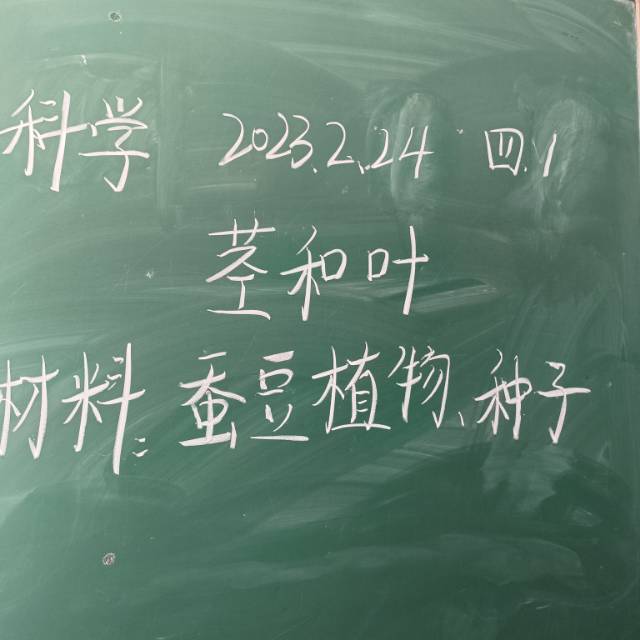 科学 2023.2.24 四.1
茎和叶
材料:蚕豆植物、种子